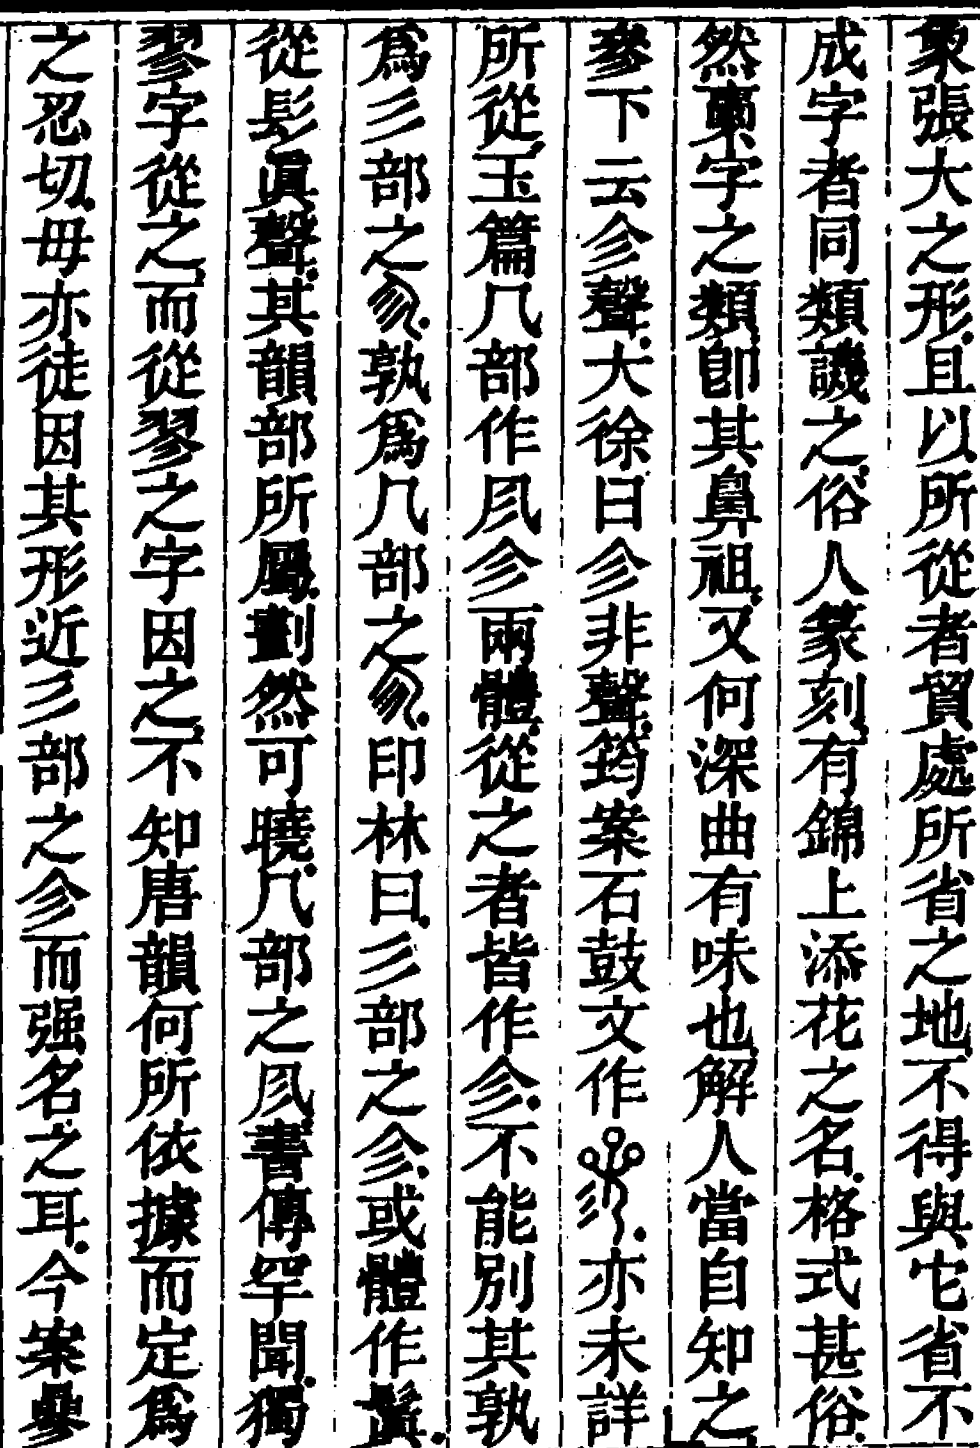 象張大之形且以所從者貿處所省之地不得與它省不
成字者同類譏之俗人篆刻有錦上添花之名格式甚俗
然稟字之類卽其鼻祖又何深曲有味也解人當自知之
參下云㐱聲大徐曰㐱非聲筠案石鼓文作亦未詳
所從玉篇几部作凨㐱兩體從之者皆作㐱不能別其孰
爲彡部之孰爲几部之印林曰彡部之㐱或體作鬒
從髟眞聲其韻部所屬劃然可曉几部之凨書傳罕聞獨
翏字從之而從翏之字因之不知唐韻何所依據而定爲
之忍切毋亦徒因其形近彡部之㐱而强名之耳今案